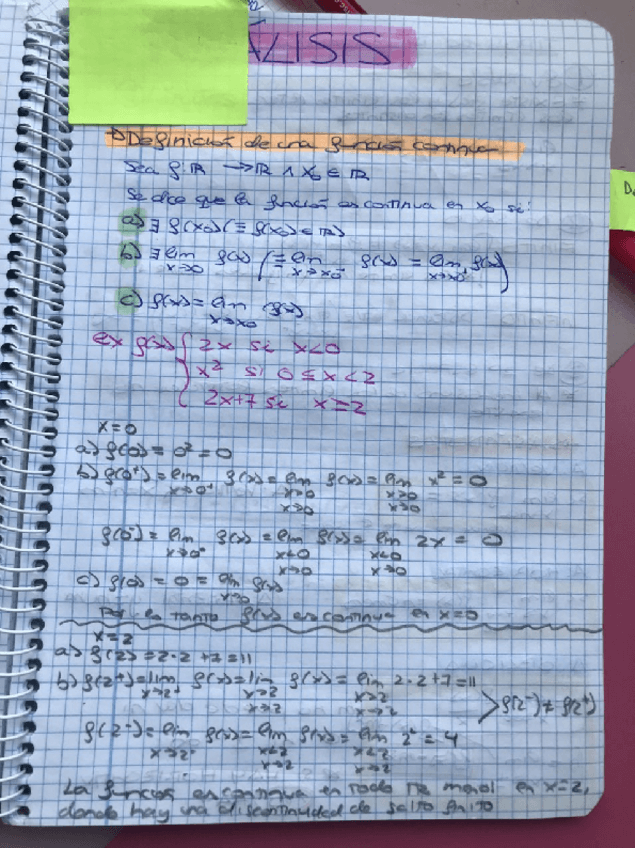 ÁLISIS
Definición de una función continua
Sea f: ℝ → ℝ ∧ x₀ ∈ ℝ
Se dice que la función es continua en x₀ si:
a) ∃ f(x₀) (≡ f(x₀) ∈ ℝ)
b) ∃ lim x→0 f(x) (≡ lim x→x₀⁻ f(x) = lim x→x₀⁺ f(x))
c) f(x) = lim x→x₀ f(x)
ex f(x) { 2x si x<0
x² si 0 ≤ x < 2
2x+7 si x ≥ 2
x=0
a) f(0) = 0² = 0
b) f(0⁺) = lim x→0⁺ f(x) = lim x>0 x→0 f(x) = lim x>0 x→0 x² = 0
f(0⁻) = lim x→0⁻ f(x) = lim x<0 x→0 f(x) = lim x<0 x→0 2x = 0
c) f(0) = 0 = lim x→0 f(x)
Por lo tanto f(x) es continua en x=0
x=2
a) f(2) = 2·2 +7 = 11
b) f(2⁺) = lim x→2⁺ f(x) = lim x>2 x→2 f(x) = lim x>2 x→2 2·2+7 = 11
f(2⁻) ≠ f(2⁺)
f(2⁻) = lim x→2⁻ f(x) = lim x<2 x→2 f(x) = lim x<2 x→2 2² = 4
La función es continua en todo ℝ menos en x=2,
donde hay una discontinuidad de salto finito